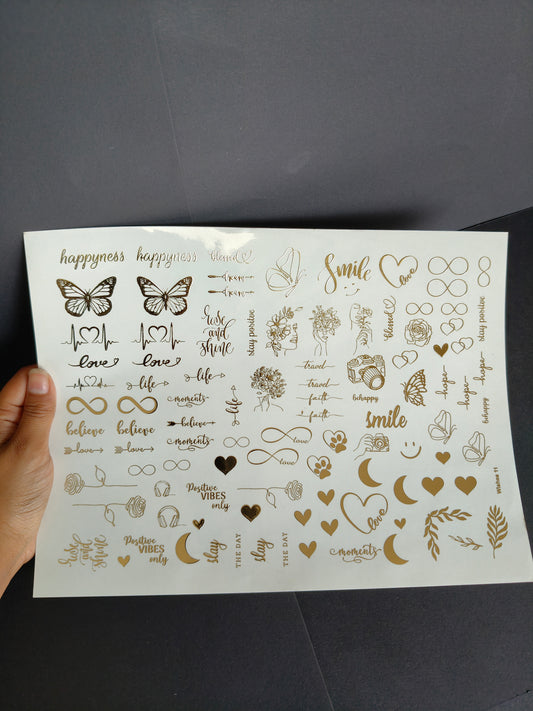 happyness happyness blessed
dream
dream
Smile
love
rose
and
shine
stay positive
blessed
stay positive
love love
life life
life
travel
travel
faith
faith
behappy
hope
hope
hope
behappy
moments
life
believe believe
believe
love love
moments
love
smile
Positive
VIBES
only
love
Wtattoo 11
rose
and
shine
Positive
VIBES
only
slay
THE DAY
slay
THE DAY
moments